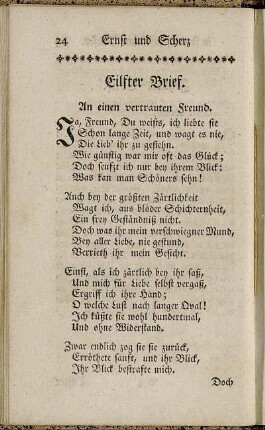 24 Ernst und Scherz
Eilfter Brief.
An einen vertrauten Freund.
Ja, Freund, Du weißs, ich liebte sie
Schon lange Zeit, und wagt es nie,
Die Lieb' ihr zu gestehn.
Wie günstig war mir oft das Glück;
Doch seufzt ich nur bey ihrem Blick:
Was kan man Schöners sehn!
Auch bey der größten Zärtlichkeit
Wagt ich, aus blöder Schichternheit,
Ein frey Geständniß nicht.
Doch was ihr mein verschwiegner Mund,
Bey aller Liebe, nie gestund,
Verrieth ihr mein Gesicht.
Einst, als ich zärtlich bey ihr saß,
Und mich für Liebe selbst vergaß,
Ergriff ich ihre Hand;
O welche Lust nach langer Qval!
Ich küßte sie wohl hundertmal,
Und ohne Widerstand.
Zwar endlich zog sie sie zurück,
Erröthete sanft, und ihr Blick,
Ihr Blick bestrafte mich.
Doch